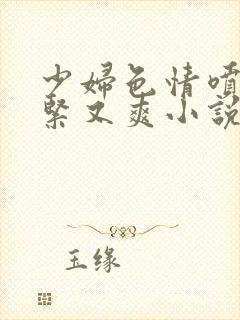 少婦色情噴
緊又爽小說
玉缘